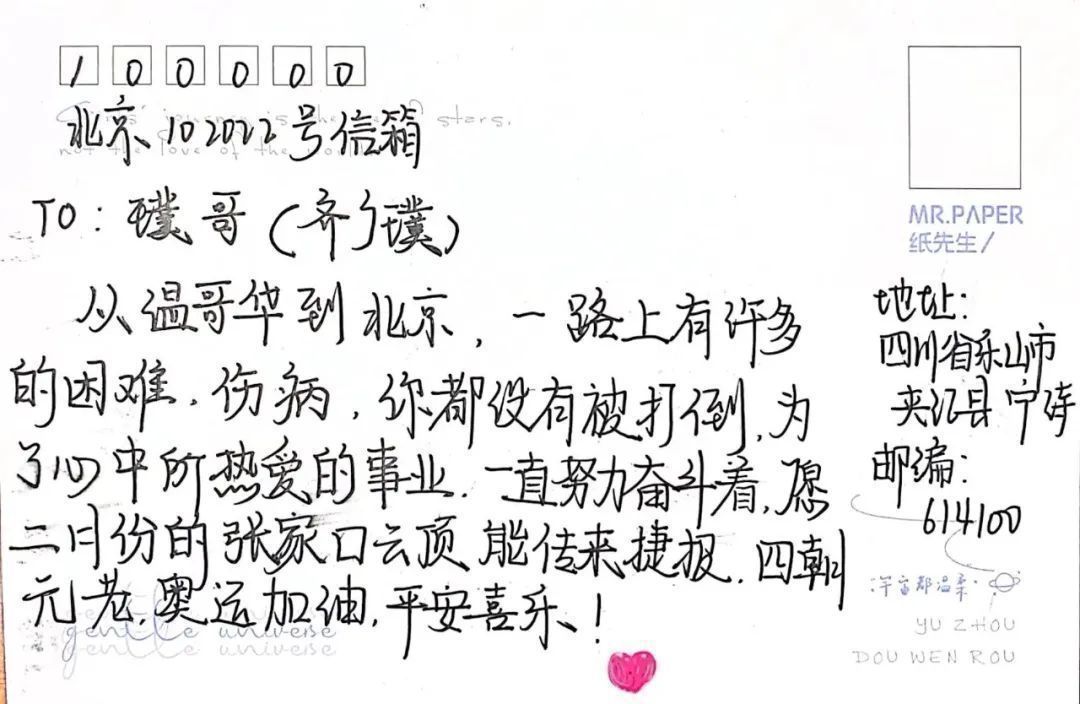 100000
北京102022号信箱
TO:璞哥(齐广璞)
从温哥华到北京,一路上有许多
的困难、伤病,你都没有被打倒,为
了心中所热爱的事业,一直努力奋斗着,愿
二月份的张家口云顶能传来捷报,四朝
元老,奥运加油,平安喜乐!
MR.PAPER
纸先生/
地址:
四川省乐山市
夹江县
邮编:
614100
宇宙都温柔
YU ZHOU
DOU WEN ROU
stars.
gentle universe
gentle universe